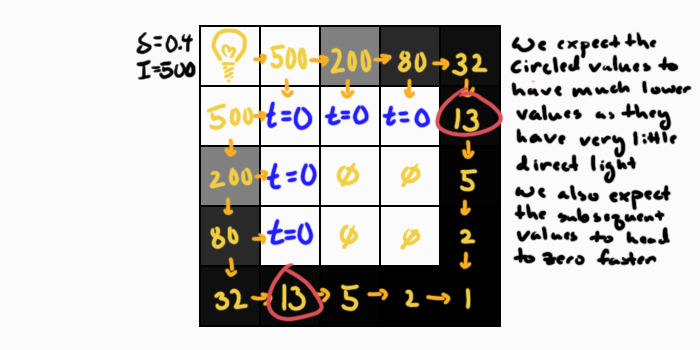 δ=0.4
I=500
500 200 80 32
500 t=0 t=0 t=0 13
200 t=0 ∅ ∅ 5
80 t=0 ∅ ∅ 2
32 13 5 2 1
We expect the
Circled values to
have much lower
values as they
have very little
direct light
We also expect
the subsequent
values to head
to zero faster